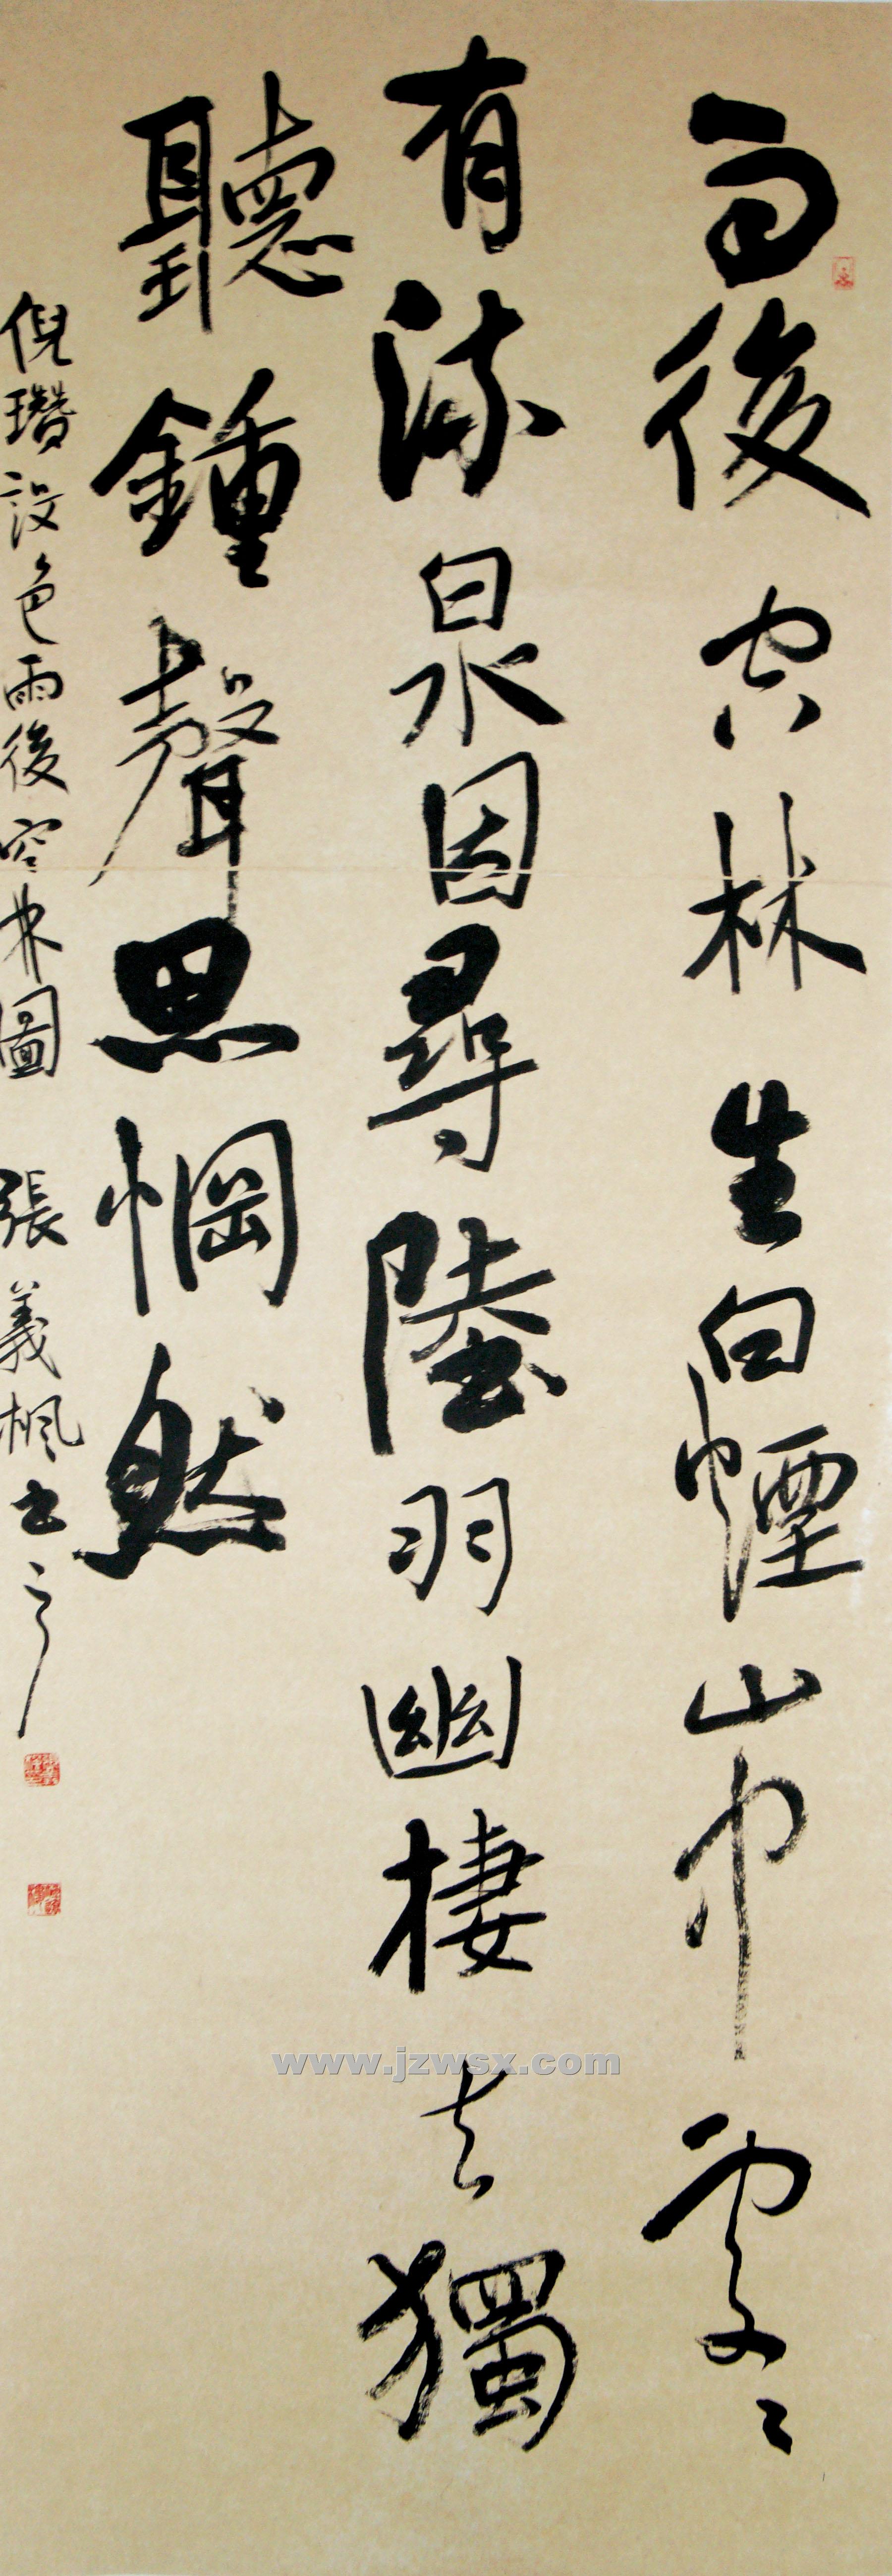 雨後空林生白煙山中處々
有流泉因尋陸羽幽棲去獨
聽鍾聲思惘然
倪瓚設色雨後空林圖 張義楓書
www.jzwsx.com